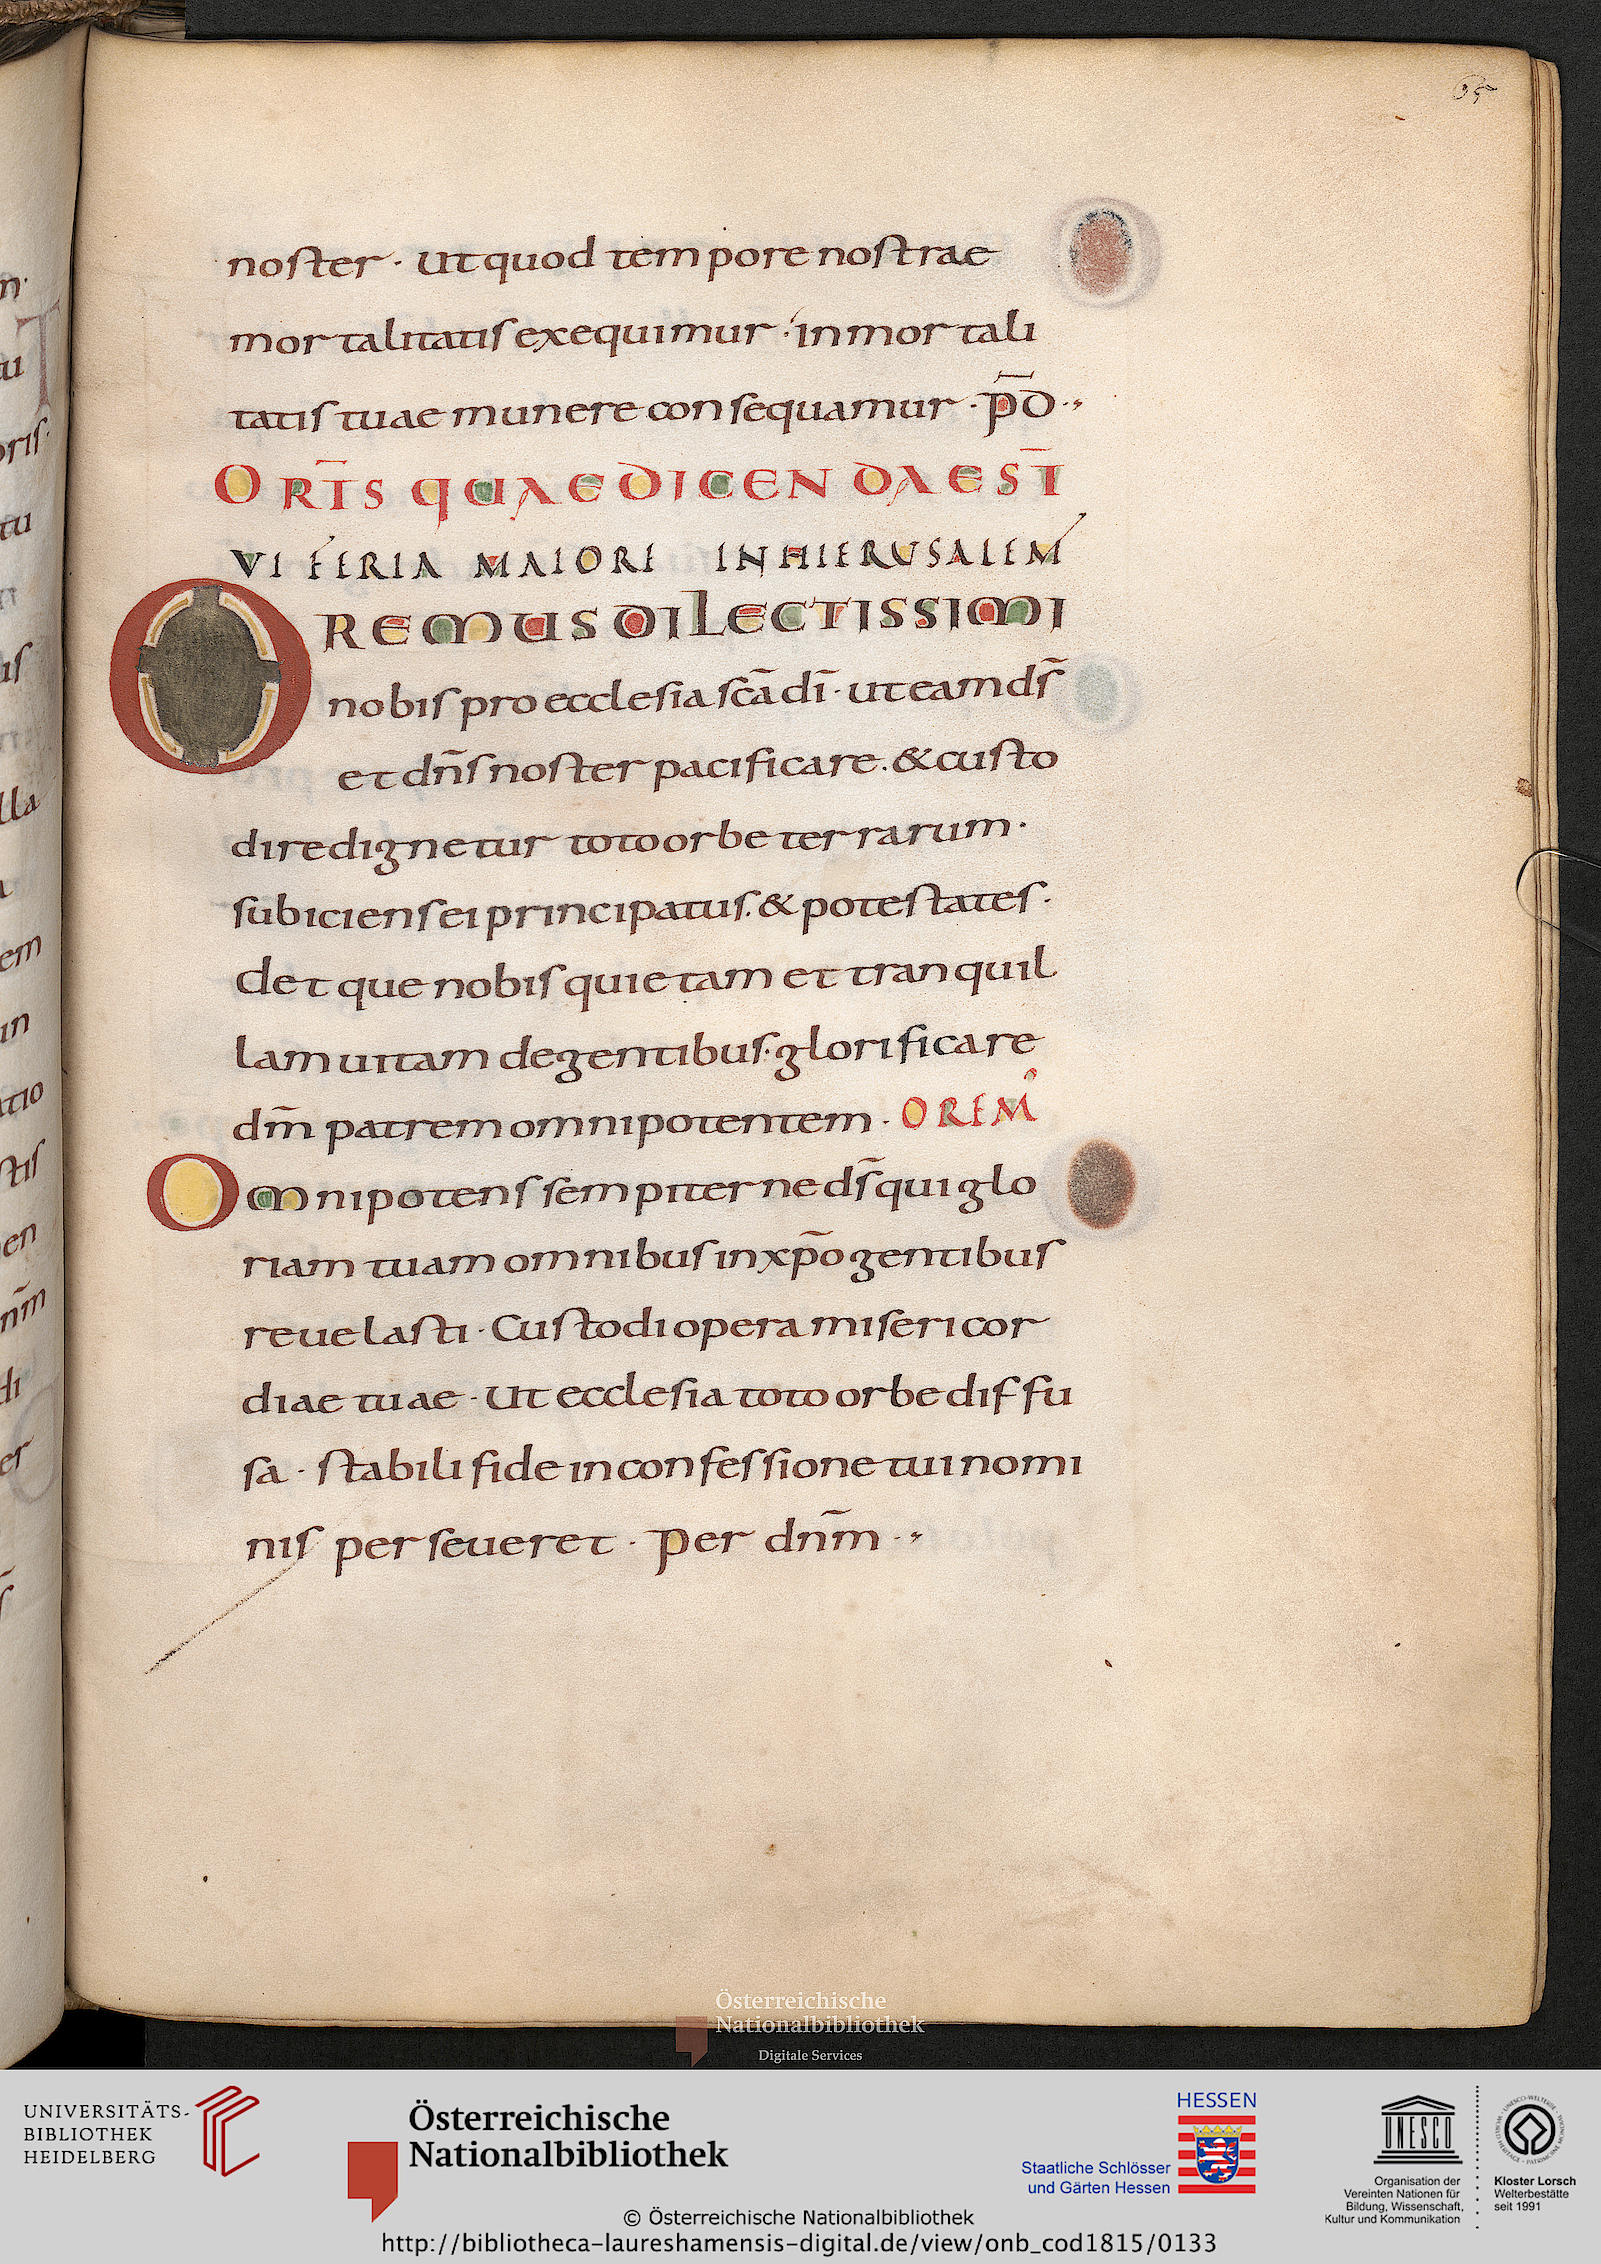 65
noster · ut quod tempore nostrae
mortalitatis exequimur · inmortali
tatis tuae munere consequamur · p̄d ·,
ORT̄S QUAE DICENDA EST̄
VI FERIA MAIORE IN HIERUSALEM
OREMUS DILECTISSIMI
nobis pro ecclesia scā dī · ut eam ds̄
et dn̄s noster pacificare · & custo
dire dignetur toto orbe terrarum ·
subiciens ei principatus · & potestates ·
det que nobis quietam et tranquil
lam uitam degentibus · glorificare
dm̄ patrem omnipotentem · OREM̄
Omnipotens sempiterne ds̄ qui glo
riam tuam omnibus in xp̄o gentibus
reuelasti · Custodi opera misericor
diae tuae · Ut ecclesia toto orbe diffu
sa · stabili fide in confessione tui nomi
nis perseueret · Per dn̄m ·,
Österreichische
Nationalbibliothek
Digitale Services
UNIVERSITÄTS-
BIBLIOTHEK
HEIDELBERG
Österreichische
Nationalbibliothek
HESSEN
Staatliche Schlösser
und Gärten Hessen
UNESCO
Organisation der
Vereinten Nationen für
Bildung, Wissenschaft,
Kultur und Kommunikation
Kloster Lorsch
Welterbestätte
seit 1991
© Österreichische Nationalbibliothek
http://bibliotheca-laureshamensis-digital.de/view/onb_cod1815/0133